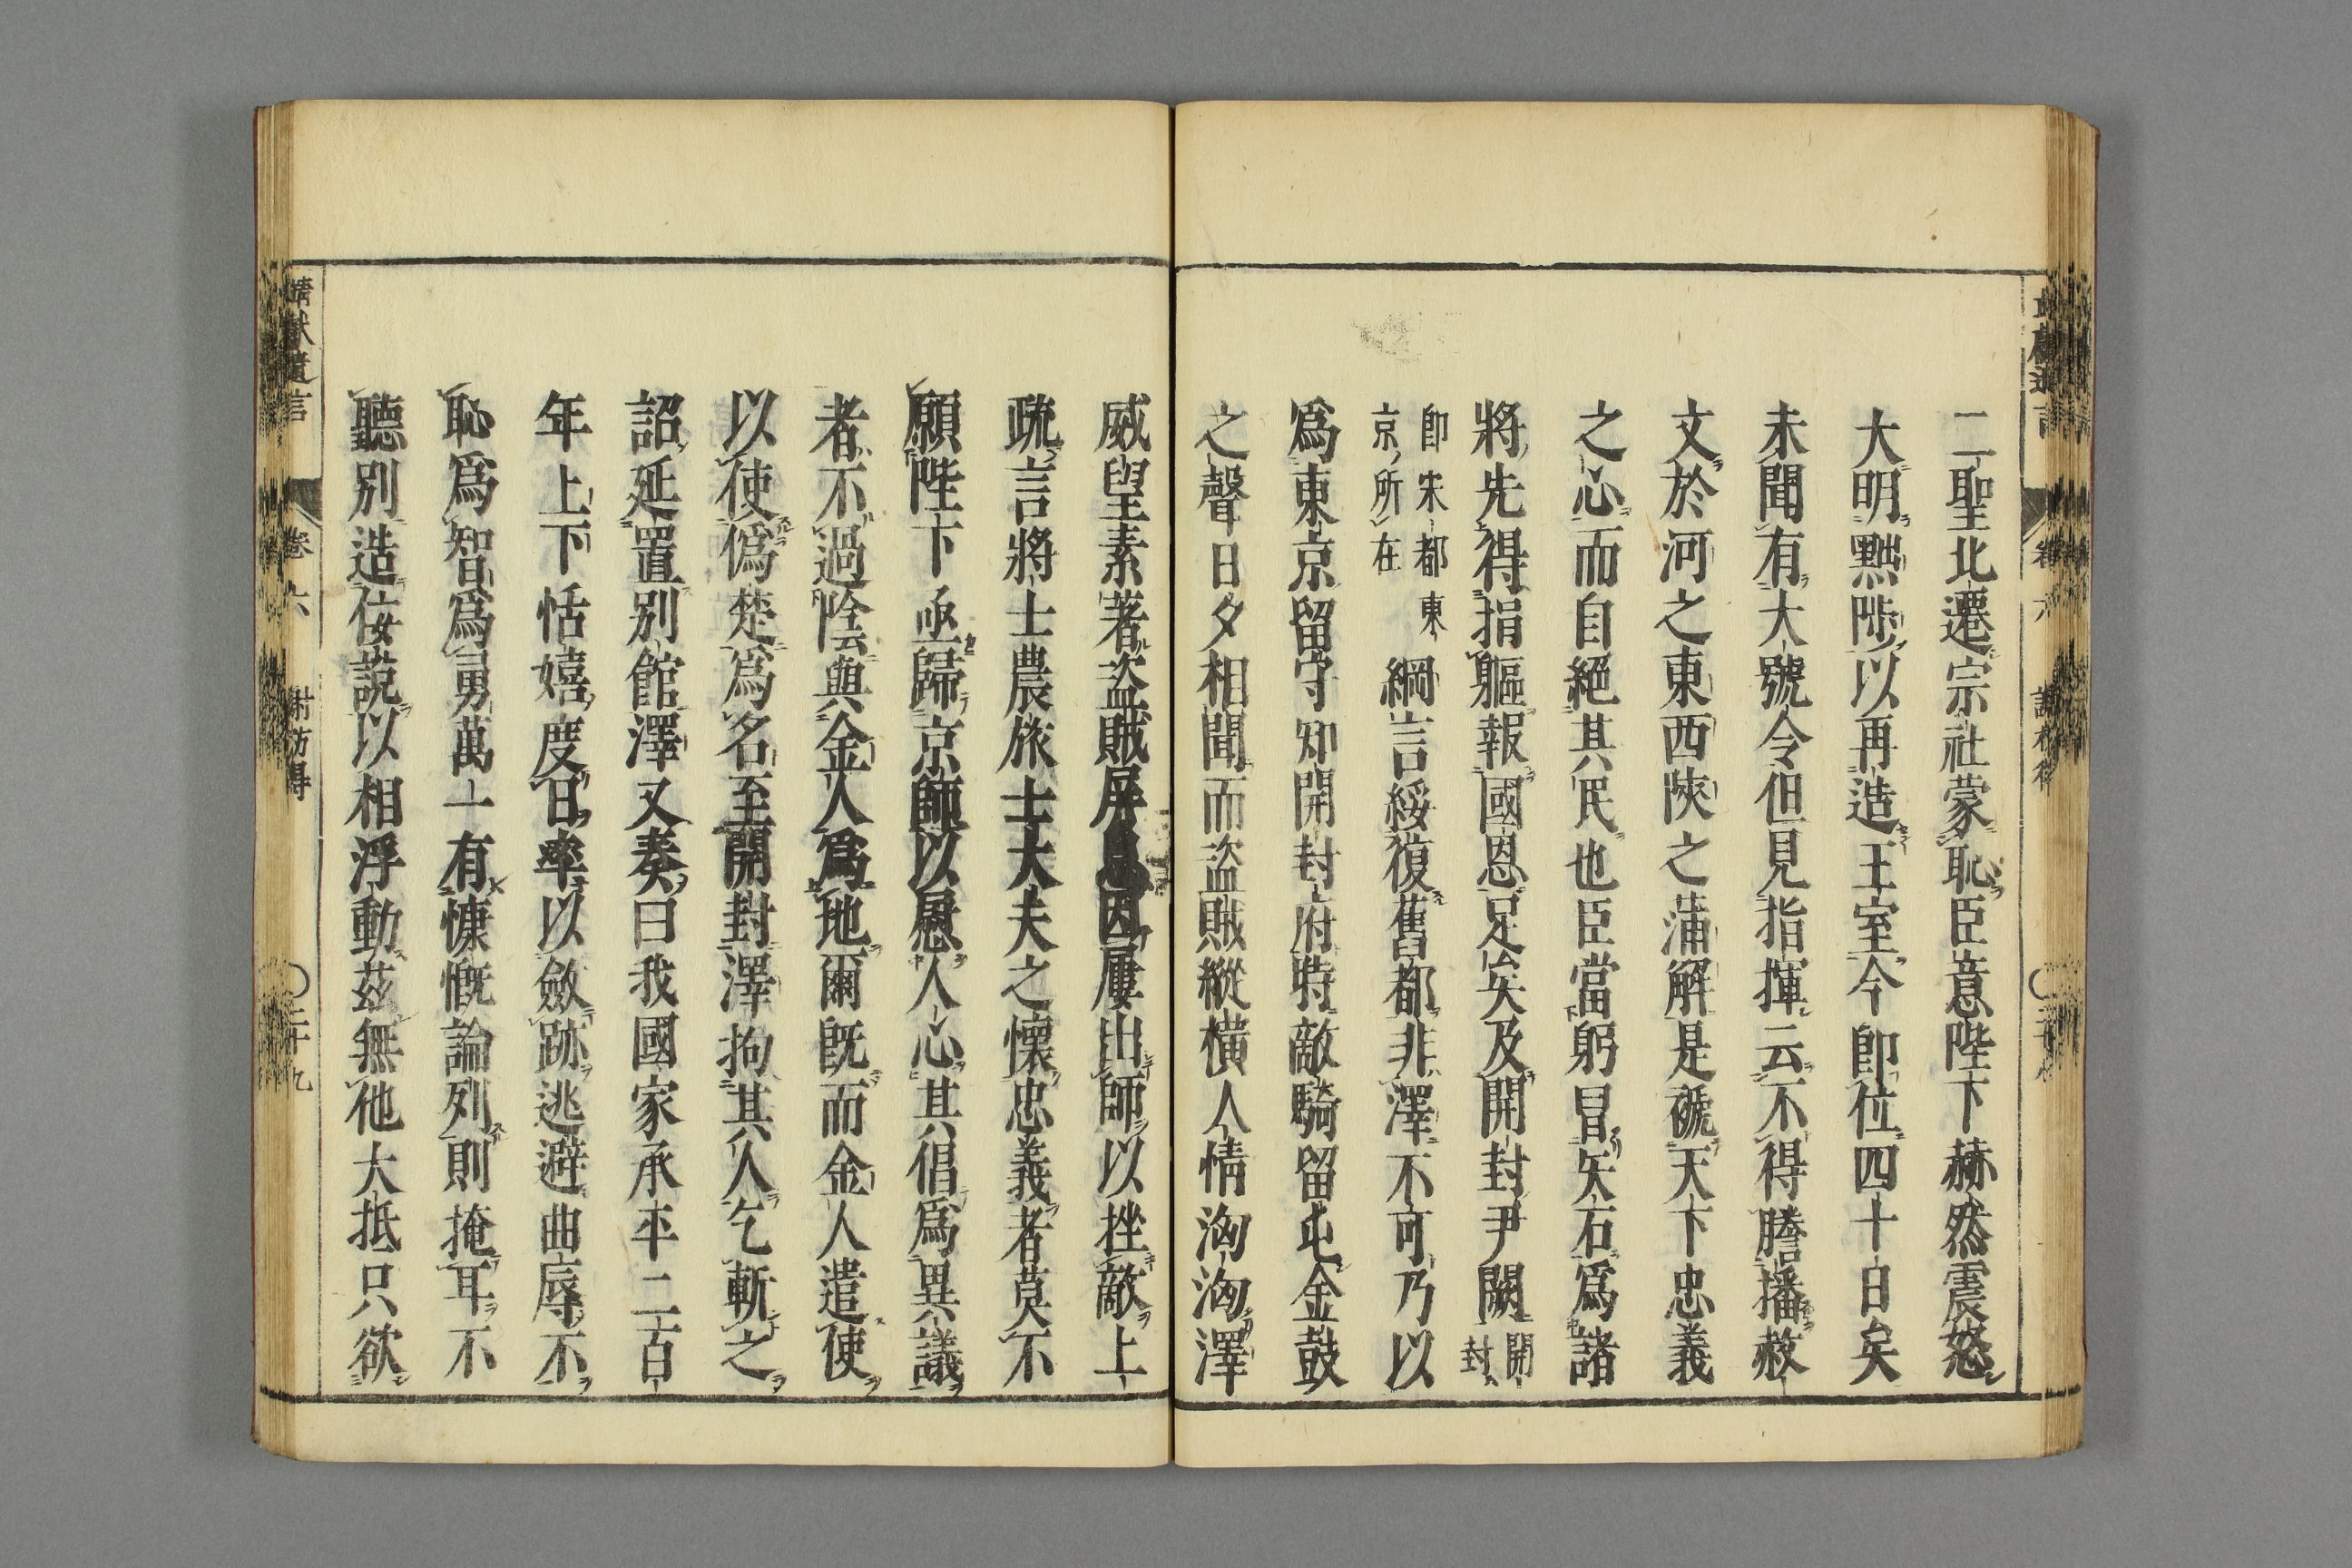 二聖北遷宗社蒙恥臣意陛下赫然震怒
大明黜陟以再造王室今即位四十日矣
未聞有大號令但見指揮云不得謄播赦
文於河之東西陝之蒲解是褫天下忠義
之心而自絕其民也臣當躬冒矢石爲諸
將先得捐軀報國恩足矣及開封尹闕開封
即宋都東京所在綱言綏復舊都非澤不可乃以
爲東京留守知開封府時敵騎留屯金鼓
之聲日夕相聞而盜賊縱橫人情洶洶澤
威望素著盜賊屏息因屢出師以挫敵上
疏言將士農旅士大夫之懷忠義者莫不
願陛下亟歸京師以慰人心其倡爲異議
者不過陰與金人爲地爾既而金人遣使
以使僞楚爲名至開封澤拘其人乞斬之
詔延置別館澤又奏曰我國家承平二百
年上下恬嬉度日率以斂跡逃避曲辱不
恥爲智爲勇萬一有慷慨論列則掩耳不
聽別造佞説以相浮動茲無他大抵只欲
靖獻遺言 卷六 謝枋得 〇二十九